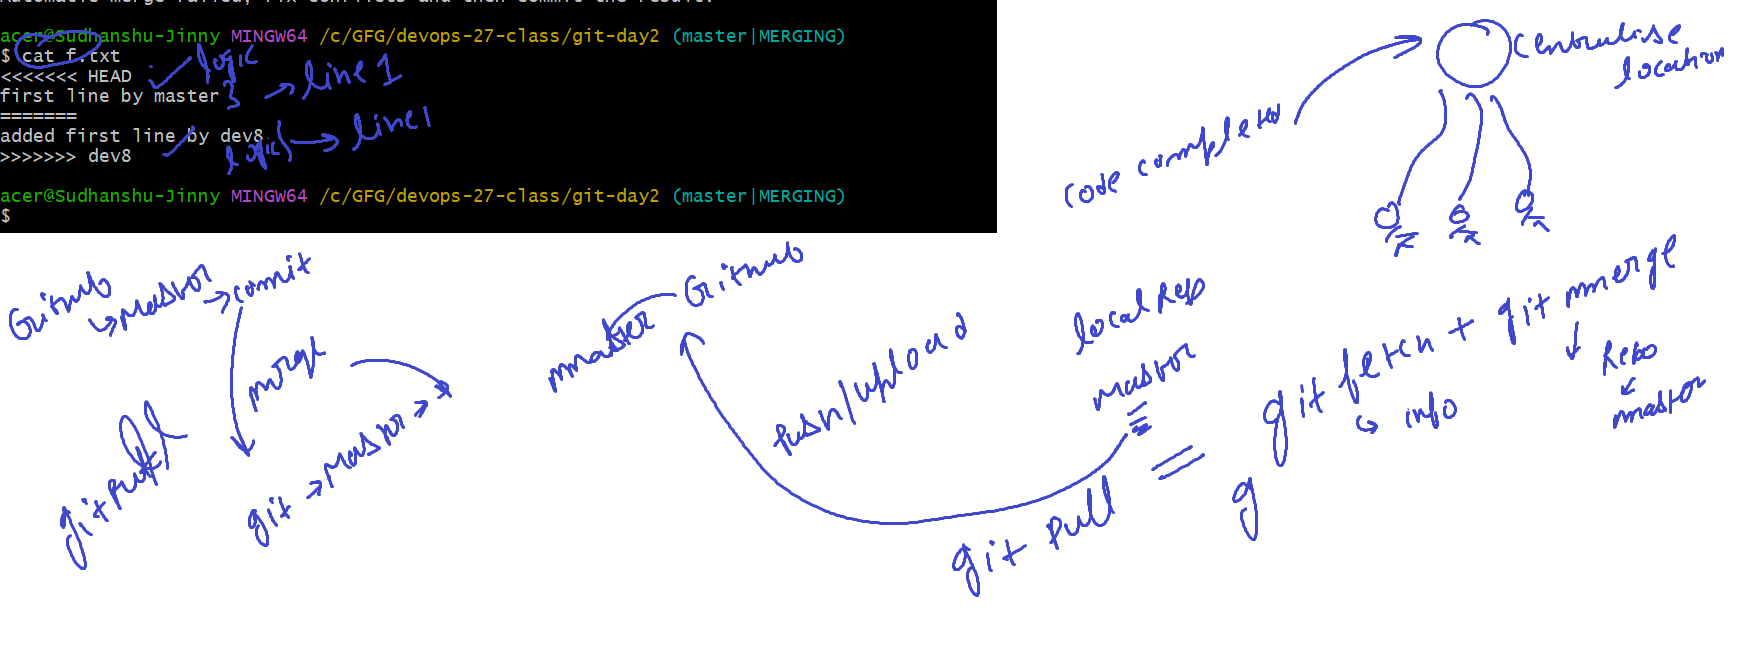 Automatic merge failed; fix conflicts and then commit the result.
acer@Sudhanshu-Jinny MINGW64 /c/GFG/devops-27-class/git-day2 (master|MERGING)
$ cat f.txt
<<<<<<< HEAD
first line by master
=======
added first line by dev8
>>>>>>> dev8
acer@Sudhanshu-Jinny MINGW64 /c/GFG/devops-27-class/git-day2 (master|MERGING)
$
logic
} → line 1
logic) → line 1
centralise
location
code completed
Github
↳ master → commit
merge
git pull
git → master →
Github
master
push/upload
local Rep
master
git pull = git fetch + git merge
↳ info
Repo
master
g